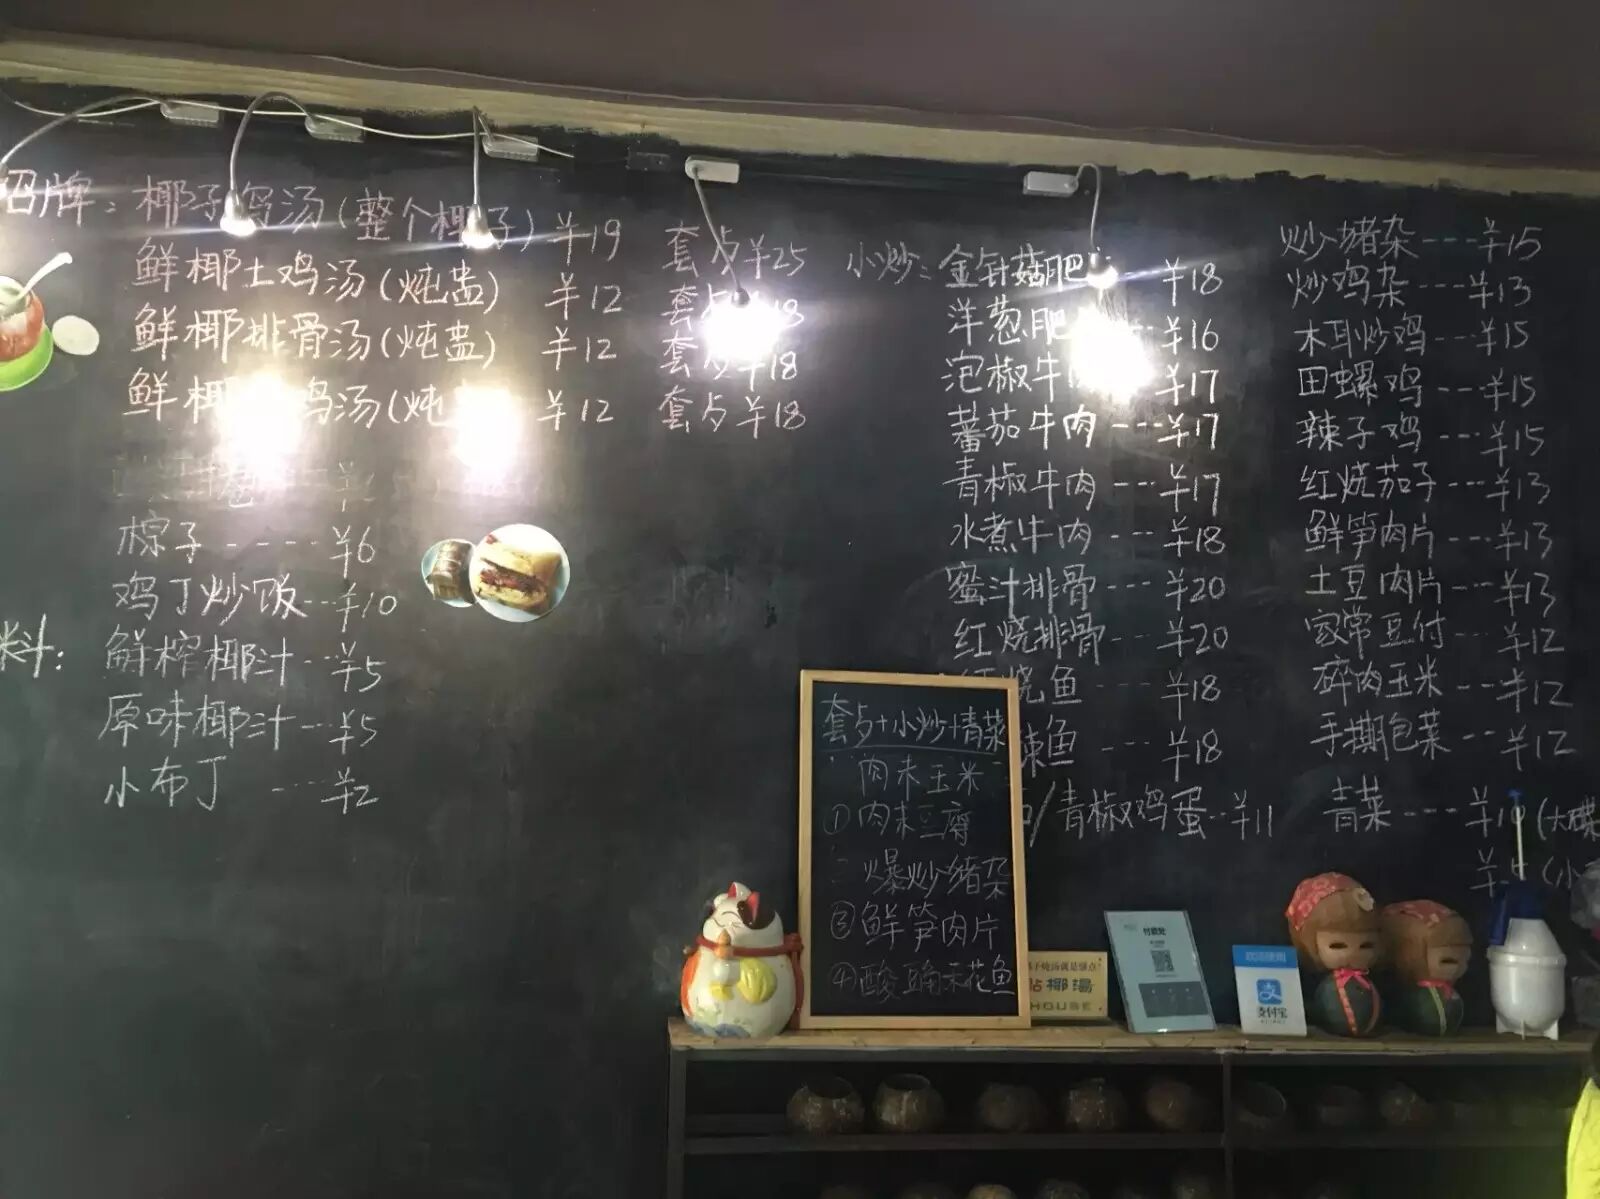 招牌：椰子鸡汤(整个椰子) ¥19 套占¥25
鲜椰土鸡汤(炖盅) ¥12 套占
鲜椰排骨汤(炖盅) ¥12 套占¥18
鲜椰 鸡汤(炖 ¥12 套占¥18
粽子----¥6
鸡丁炒饭--¥10
料： 鲜榨椰汁--¥5
原味椰汁--¥5
小布丁 ---¥2
小炒：金针菇肥 -- ¥18
洋葱肥 -- ¥16
泡椒牛肉 ¥17
蕃茄牛肉 ---¥17
青椒牛肉 ---¥17
水煮牛肉 ---¥18
蜜汁排骨 ---¥20
红烧排骨---¥20
红烧鱼 ---¥18
鱼 ---¥18
/青椒鸡蛋--¥11
炒猪杂----¥15
炒鸡杂----¥13
木耳炒鸡---¥15
田螺鸡 ---¥15
辣子鸡 ---¥15
红烧茄子---¥13
鲜笋肉片---¥13
土豆肉片---¥13
家常豆付---¥12
碎肉玉米---¥12
手撕包菜--¥12
青菜----¥10(大碟
(小
套占+小炒+青菜
肉末玉米
①肉末豆腐
爆炒猪杂
③鲜笋肉片
④酸豆角禾花鱼
付款处
椰湯
支付宝